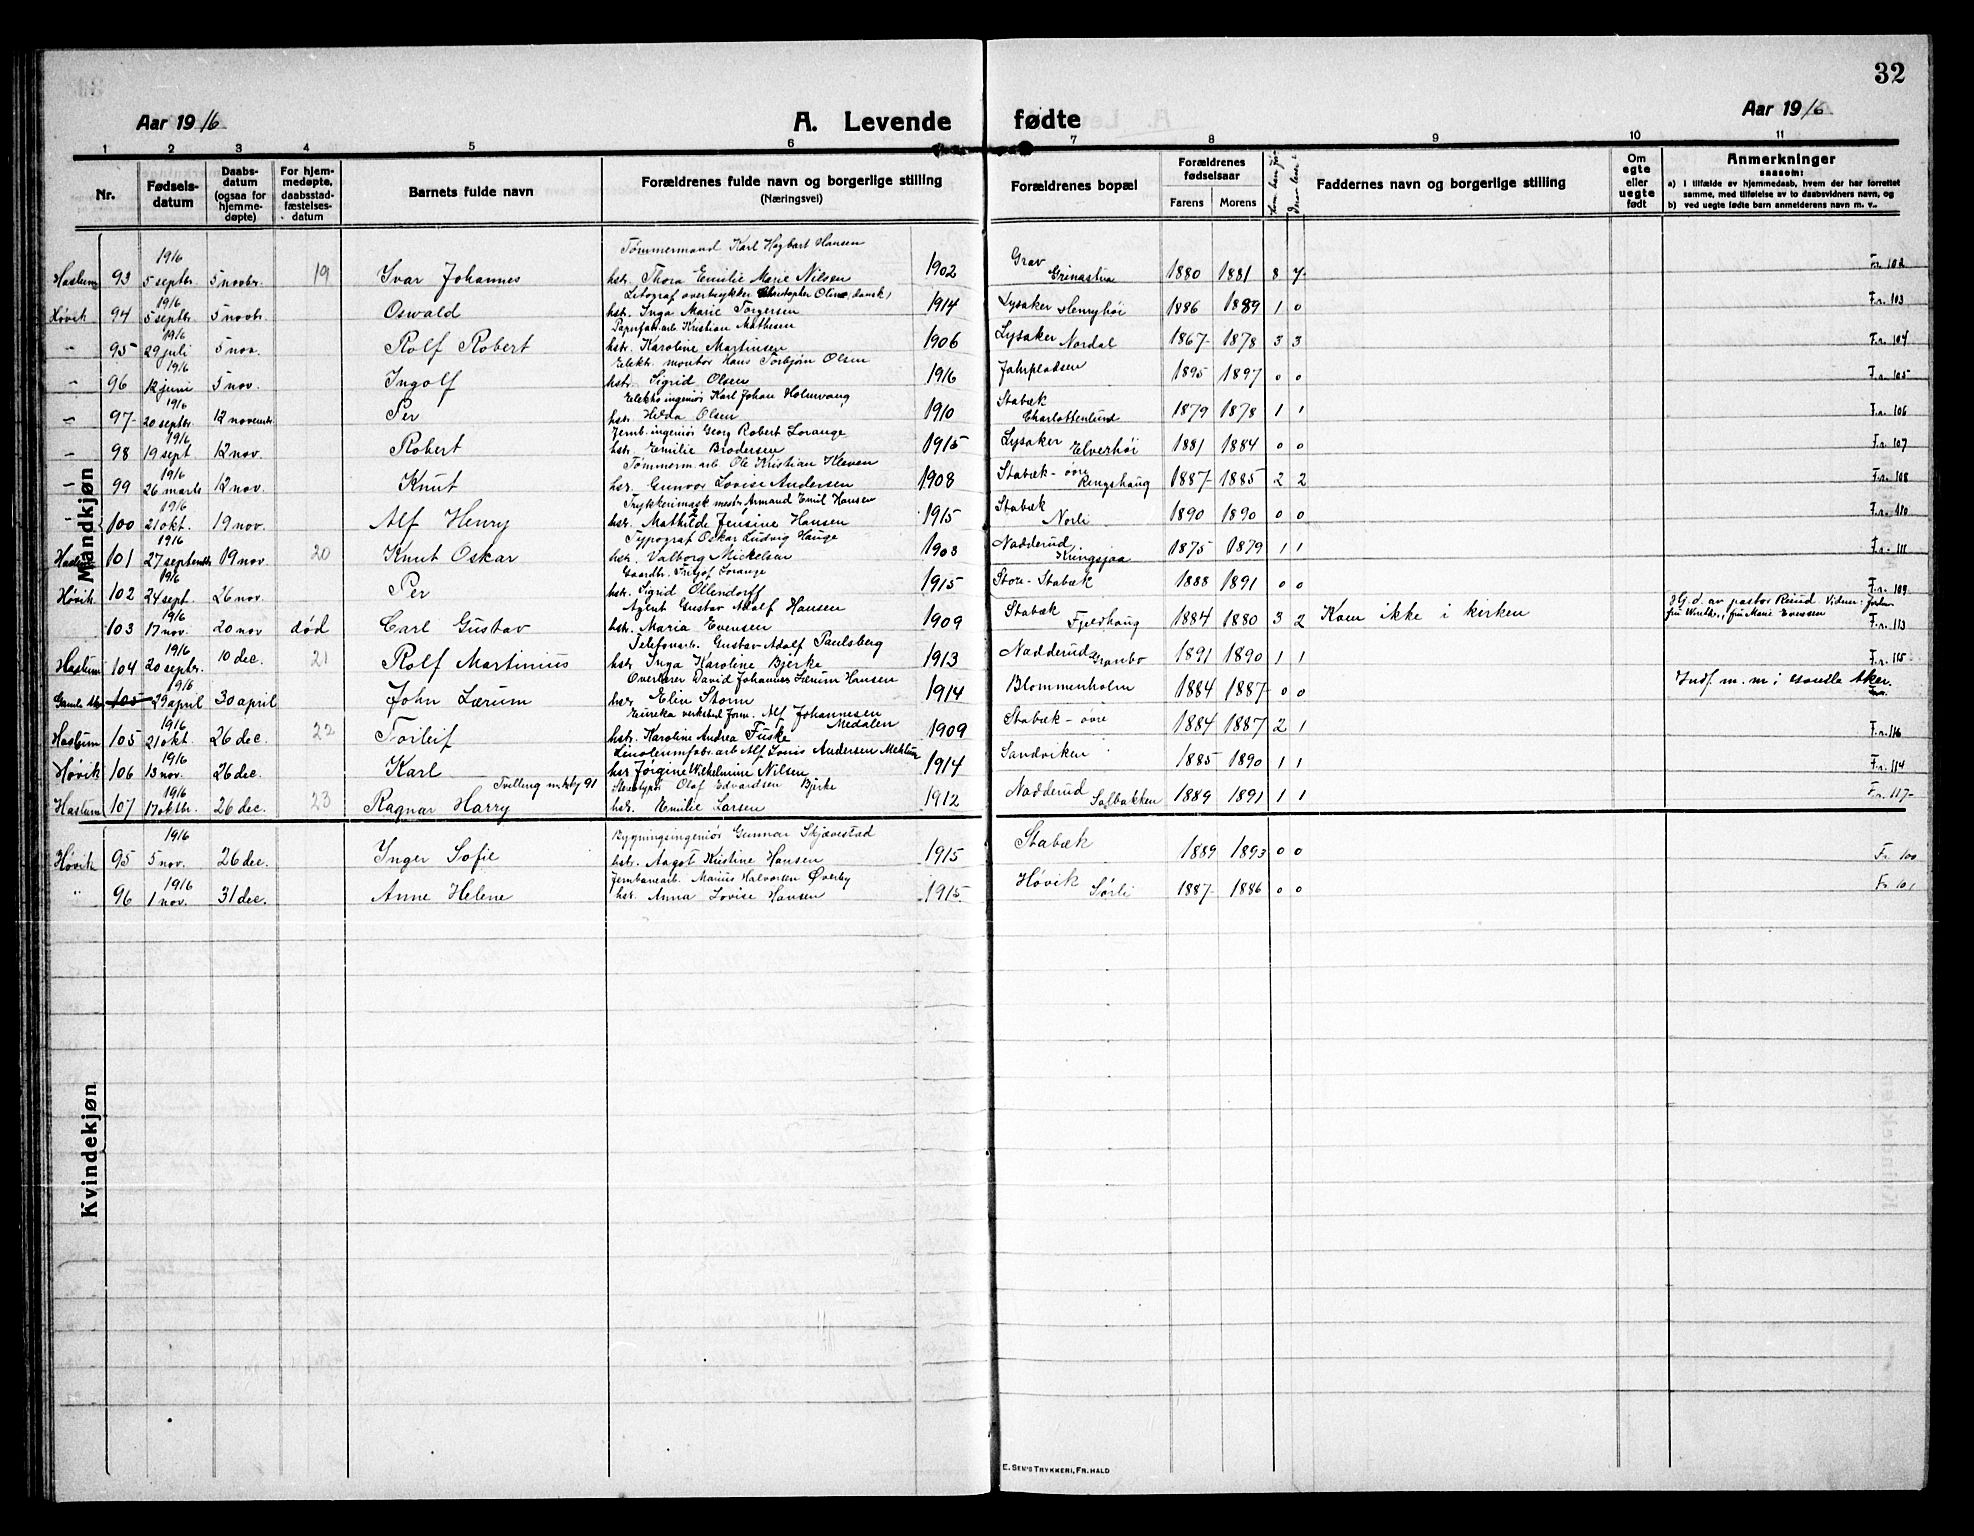 32
Aar 1916
A. Levende fødte
Aar 1916
1 2 3 4 5 6 7 8 9 10 11
Nr.
Fødsels-
datum
Daabs-
datum
(ogsaa for
hjemme-
døpte)
For hjem-
medøpte,
daabsstad-
fæstelses-
datum
Barnets fulde navn
Forældrenes fulde navn og borgerlige stilling
(Næringsvei)
Forældrenes bopæl
Forældrenes
fødselsaar
Farens Morens
Faddernes navn og borgerlige stilling
Om
egte
eller
uegte
født
Anmerkninger
saasom:
a) I tilfælde av hjemmedaab, hvem der har forrettet
samme, med tilføielse av to daabsvidners navn, og
b) ved uegte fødte barn anmelderens navn m. v.
Mandkjøn
1916 Tømmermand Karl Hagbart Hansen
Haslum 93 5 septbr. 5 novbr. 19 Ivar Johannes hstr. Thora Emilie Marie Nilsen 1902 Grav Grinastua 1880 1881 8 7 Fr. 102
1916 Litograf overtrykker Christopher Oline, dansk,
Høvik 94 5 septbr. 5 novbr. Oswald hstr. Inga Marie Torgersen 1914 Lysaker Henryhøi 1886 1889 1 0 Fr. 103
1916 Papirfabr.arb. Kristian Mathesen
" 95 29 juli 5 nov. Rolf Robert hstr. Karoline Martinsen 1906 Lysaker Nordal 1867 1878 3 3 Fr. 104
1916 Elekt. montør Hans Torbjøn Olsen
" 96 12 juni 5 nov. Ingolf hstr. Sigrid Olsen 1916 Jahrpladsen 1895 1897 0 0 Fr. 105
1916 Elektroingeniør Karl Johan Holmvang
" 97 20 septbr. 12 novembr. Per hstr. Hilda Olsen 1910 Stabæk Charlottenlund 1879 1878 1 1 Fr. 106
1916 Jernb. ingeniør Georg Robert Lorange
" 98 19 sept. 12 nov. Robert hstr. Emilie Brodersen 1915 Lysaker Elverhøi 1881 1884 0 0 Fr. 107
1916 Tømmerm. arb. Ole Kristian Kleven
" 99 26 marts 12 nov. Knut hstr. Gunvor Lovise Andersen 1908 Stabæk-øvre Ringshaug 1887 1885 2 2 Fr. 108
1916 Trykkerimask.mestr. Armand Emil Hansen
" 100 21 okt. 19 nov. Alf Henry hstr. Mathilde Jensine Hansen 1915 Stabæk Norli 1890 1890 0 0 Fr. 110
1916 Typograf Oskar Ludvig Hauge
Haslum 101 27 septembr. 19 nov. 20 Knut Oskar hstr. Valborg Mickelsen 1903 Nadderud Kringsjaa 1875 1879 1 1 Fr. 111
1916 Gaardbr. Fritjof Lorange
Høvik 102 24 sept. 26 nov. Per hstr. Sigrid Ollendorff 1915 Store-Stabæk 1888 1891 0 0 Fr. 109
1916 Agent Gustav Adolf Hansen
103 17 nov. 20 nov død Carl Gustav hstr. Maria Evensen 1909 Stabæk Fjeldhaug 1884 1880 3 2 Kom ikke i kirken HG. d. av pastor Ruud. Vidner: fru Maie Evensen Fr. 113
1916 Telefonarb. Gustav Adolf Paulsberg
Haslum 104 20 septbr. 10 dec. 21 Rolf Martinius hstr. Inga Karoline Bjerke 1913 Nadderud Granbo 1891 1890 1 1 Fr. 115
1916 Overlærer David Johannes Lærum Hansen
Gamle Aker 105 29 april 30 april John Lærum hstr. Elin Storm 1914 Blommenholm 1884 1887 0 0 Indf. m. m i Gamle Aker.
1916 Eureka verksted form. Alf Johannesen Medalen
Haslum 105 21 okt. 26 dec. 22 Torleif hstr. Karoline Andrea Fuske 1909 Stabæk-øvre 1884 1887 2 1 Fr. 116
1916 Linoleumfabr.arb Alf Louis Andersen Mehlum
Høvik 106 13 nov. 26 dec. Karl hstr Jørgine Wilhelmine Nilsen 1914 Sandviken 1885 1890 1 1 Fr. 114
1916 Tvilling m. kby 91 Stereotypør Olaf Edvardsen Bjerke
Haslum 107 17 oktbr. 26 dec. 23 Ragnar Harry hstr. Emilie Larsen 1912 Nadderud Solbakken 1889 1891 1 1 Fr. 117
Kvindekjøn
1916 Bygningsingeniør Gunnar Skjævestad
Høvik 95 5 nov. 26 dec. Inger Sofie hstr. Aagot Kristine Hansen 1915 Stabæk 1889 1893 0 0 Fr. 100
1916 Jernbanearb. Marius Halvorsen Øverby
" 96 1 nov. 31 dec. Anne Helene hstr. Anna Lovise Hansen 1915 Høvik Sørli 1887 1886 0 0 Fr. 101
E. SEM'S TRYKKERI, FR.HALD